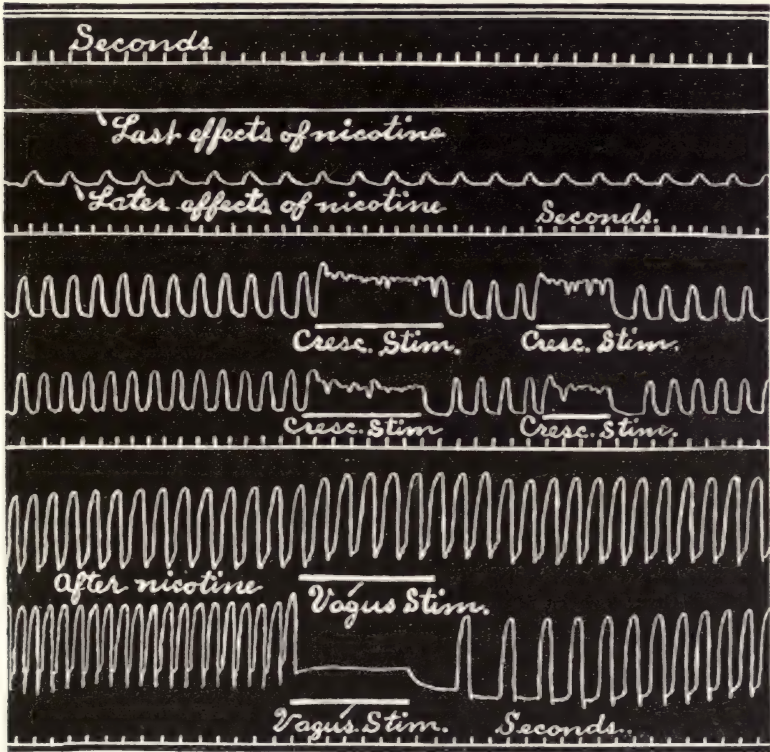 Seconds
Last effects of nicotine
Later effects of nicotine
Seconds.
Cresc. Stim.
Cresc. Stim.
Cresc. Stim
Cresc. Stim.
After nicotine
Vagus Stim.
Vagus Stim.
Seconds.